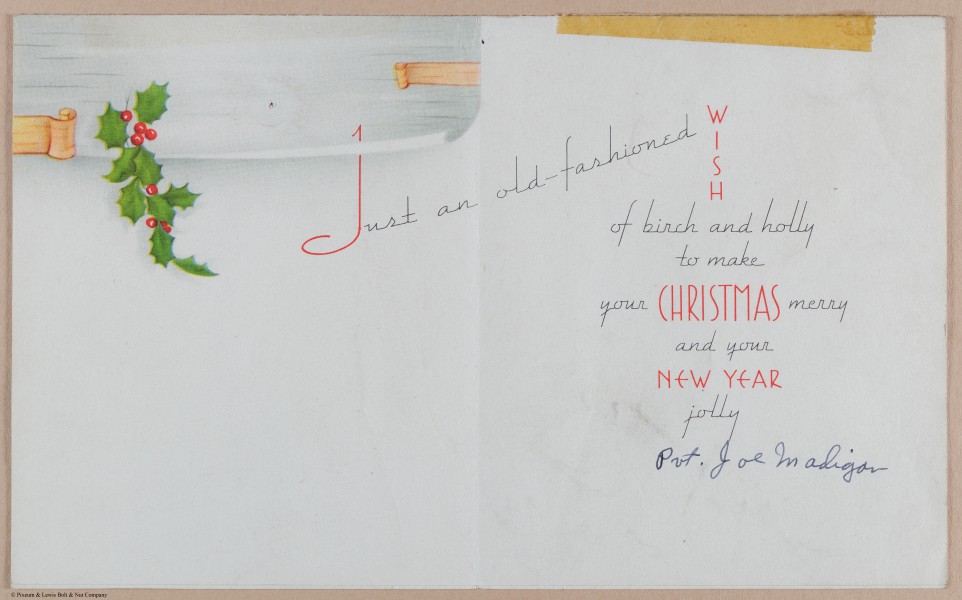 Just an old-fashioned WISH
of birch and holly
to make
your CHRISTMAS merry
and your
NEW YEAR
jolly
Pvt. Joe Madigan
© Pixeum & Lewis Bolt & Nut Company